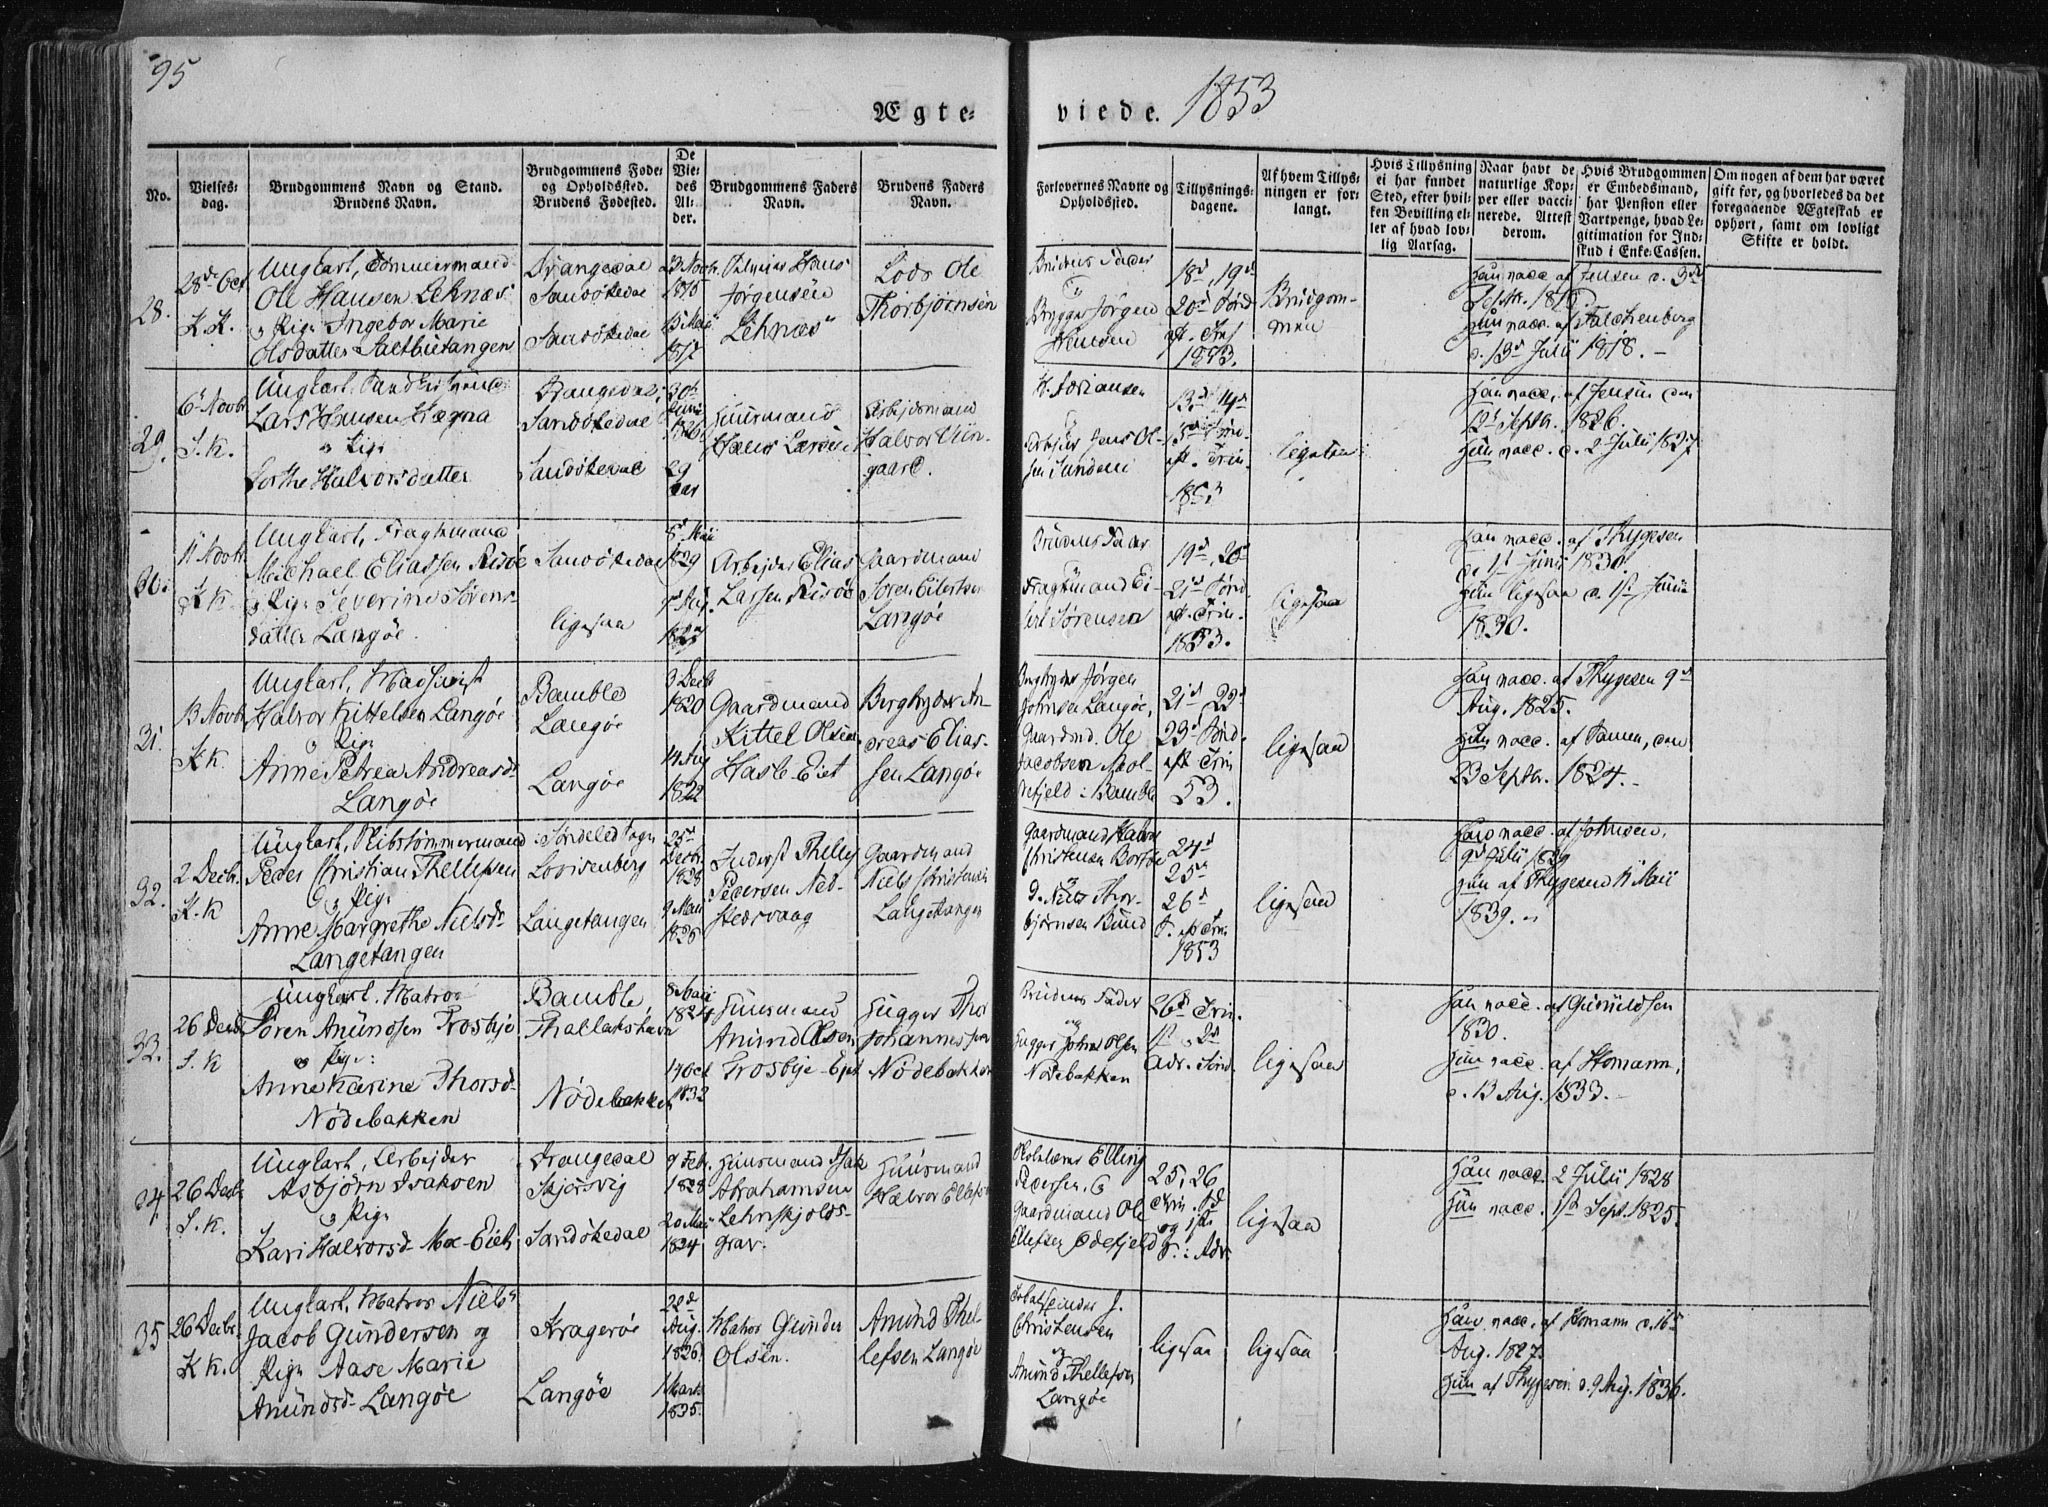 95
Ægte-
viede. 1853
No.
Vielses-
dag.
Brudgommens Navn og Stand.
Brudens Navn.
Brudgommens Føde-
og Opholdssted.
Brudens Fødested.
De
Vie-
des
Al-
der.
Brudgommens Faders
Navn.
Brudens Faders
Navn.
Forlovernes Navne og
Opholdssted.
Tillysnings-
dagene.
Af hvem Tillys-
ningen er for-
langt.
Hvis Tillysning
ei har fundet
Sted, efter hvil-
ken Bevilling el-
ler af hvad lov-
lig Aarsag.
Naar havt de
naturlige Kop-
per eller vacci-
nerede. Attest
derom.
Hvis Brudgommen
er Embedsmand,
har Pension eller
Vartpenge, hvad Le-
gitimation for Ind-
skud i Enke-Cassen.
Om nogen af dem har været
gift før, og hvorledes da det
foregaaende Ægteskab er
ophørt, samt om lovligt
Skifte er holdt.
28.
28de Oct
K. K.
Ungkarl, Tømmermand
Ole Hansen Leknæs
og Pige Ingebor Marie
Olsdatter Saltbutangen
Drangedal
Sandøkedal
Sandøkedal
23 Novbr.
1815
15 Maii
1817
Hans
Jørgensen
Leknæs
Lods Ole
Thorbjørnsen
Brudens Fader
Brygger Jørgen
Hansen
18d, 19d
20d Sønd
eft. Trin
1853.
Brudgom-
men
Han vacc. af Jensen d. 3d
Septr. 1816
Hun vacc. af Falchenberg
d. 13d Julii 1818.
29.
6t Novbr
S. K.
Ungkarl,
Lars Hansen Hægna
og Pige
Dorthe Halvorsdatter
Drangedal,
Sandøkedal
Sandøkedal
30t
Junii
1826
29
Aar
Huusmand
Hans Larsen
Arbejdsmand
Halvor Viin-
gaard.
H. Adriansen
og
Arbejder Jens Ol-
sen
13d, 14d
15d Sønd.
eft. Trin.
1853
ligesaa
Han vacc. af Jensen den
12d Septr. 1826.
Hun vacc. d. 2 Julii 1827.
30.
11 Novbr
K K.
Ungkarl, Fragtmand
Michael Eliassen Risøe
og Pige Severine Sørens-
datter Langøe.
Sandøkedal
ligesaa
5t Maii
1829
Aug.
Arbejder Elias
Larsen Risøe
Gaardmand
Søren Eilertsen
Langøe
Brudens Fader
Fragtmand Ei-
lert Sørensen
19d, 20d
21d Sønd.
eft. Trin.
1853.
ligesaa
Han vacc. af Thygesen
d. 1st Junii 1830.
Hun ligesaa d. 1st Junii
1830.
31.
13 Novbr
K K.
Ungkarl,
Halvor Kittelsen Langøe
og Pige
Anne Petrea Andreasd.
Langøe
Bamble
Langøe
Langøe
3 Decb
1820
14 Aug
1822
Gaardmand
Kittel Olsen
Hasle-Eiet
Bergbryder An-
dreas Elias-
sen Langøe
Bergbryder Jørgen
Johnsen Langøe,
Gaardmd. Ole
Jacobsen
i Bamble
21d, 22d
23d Sønd.
eft. Trin
53.
ligesaa
Han vacc. af Thygesen 9d
Aug. 1825.
Hun vacc. af den
23 Septbr. 1824.
32.
2 Decbr.
K. K
Ungkarl, Skibstømmermand
Peder Christian Thellefsen
og Pige
Anne Margrethe Nielsd.
Langetangen
Søndeled Sogn
Lovisenberg
Langetangen
25d
Decbr.
1828
9 Maii
1825
Inderst Thellef
Pedersen Ned-
stedsvaag
Gaardmand
Niels Christensen
Langetangen
Gaardmand Halvor
Christensen Borteøe
og Niels Thor-
bjørnsen Rund
24d
25d
26d
S. eft Trin
1853
ligesaa
Han vacc. af Johnsen,
9d Julii 1829
Hun af Thygesen 11 Maii
1839.
33.
26 Decb.
S. K
Ungkarl, Matros
Søren Anundsen Frosbje
og Pige:
Anne Karine Thorsd.
Nødebakken
Bamble,
Thallakshavn
Nødebakken
8 Maii
1824
14 Oct
1832
Huusmand
Anund Olsen
Frosbje-Eiet
Hugger Thor
Johannesen
Nødebakken
Brudens Fader
og
Hugger Johns Olsen
Nødebakken
26d Trin.
1st, 2d
Adv. Sønd.
ligesaa
Han vacc. af Gunildsen
1830.
Hun vacc. af Homann,
d. 13 Aug. 1833.
34.
26 Decbr
S. K.
Ungkarl, Arbejder
Asbjørn Isaksen
og Pige
Kari Halvorsd. Moe-Eiet
Drangedal
Skjørsvig
Sandøkedal
9 Febr.
1828
20 Maii
1824
Huusmand Isak
Abrahamsen
Lehnskjolds-
grav.
Huusmand
Halvor Ellefsen
Skolelærer Elling
Pedersen, og
Gaardmand Ole
Ellefsen Ødefjeld
25, 26
Trin. Sd
og 1ste
S. i Adv.
ligesaa
Han vacc. 2 Julii 1828
Hun vacc. 1st Sept. 1825.
35
26 Decbr.
K K.
Ungkarl, Matros Niels
Jacob Gundersen og
Pige Aase Marie
Anundsd. Langøe
Kragerøe
Langøe
22d
Aug.
1826.
1 Marts
1835.
Matros Gunder
Olsen.
Anund Thel-
lefsen Langøe
Tobaksspinder J.
Christensen
og
Anund Thellefsen
Langøe
ligesaa
ligesaa
Han vacc. af Homann d. 16d
Aug. 1827.
Hun af Thygesen d. 9 Aug. 1836.